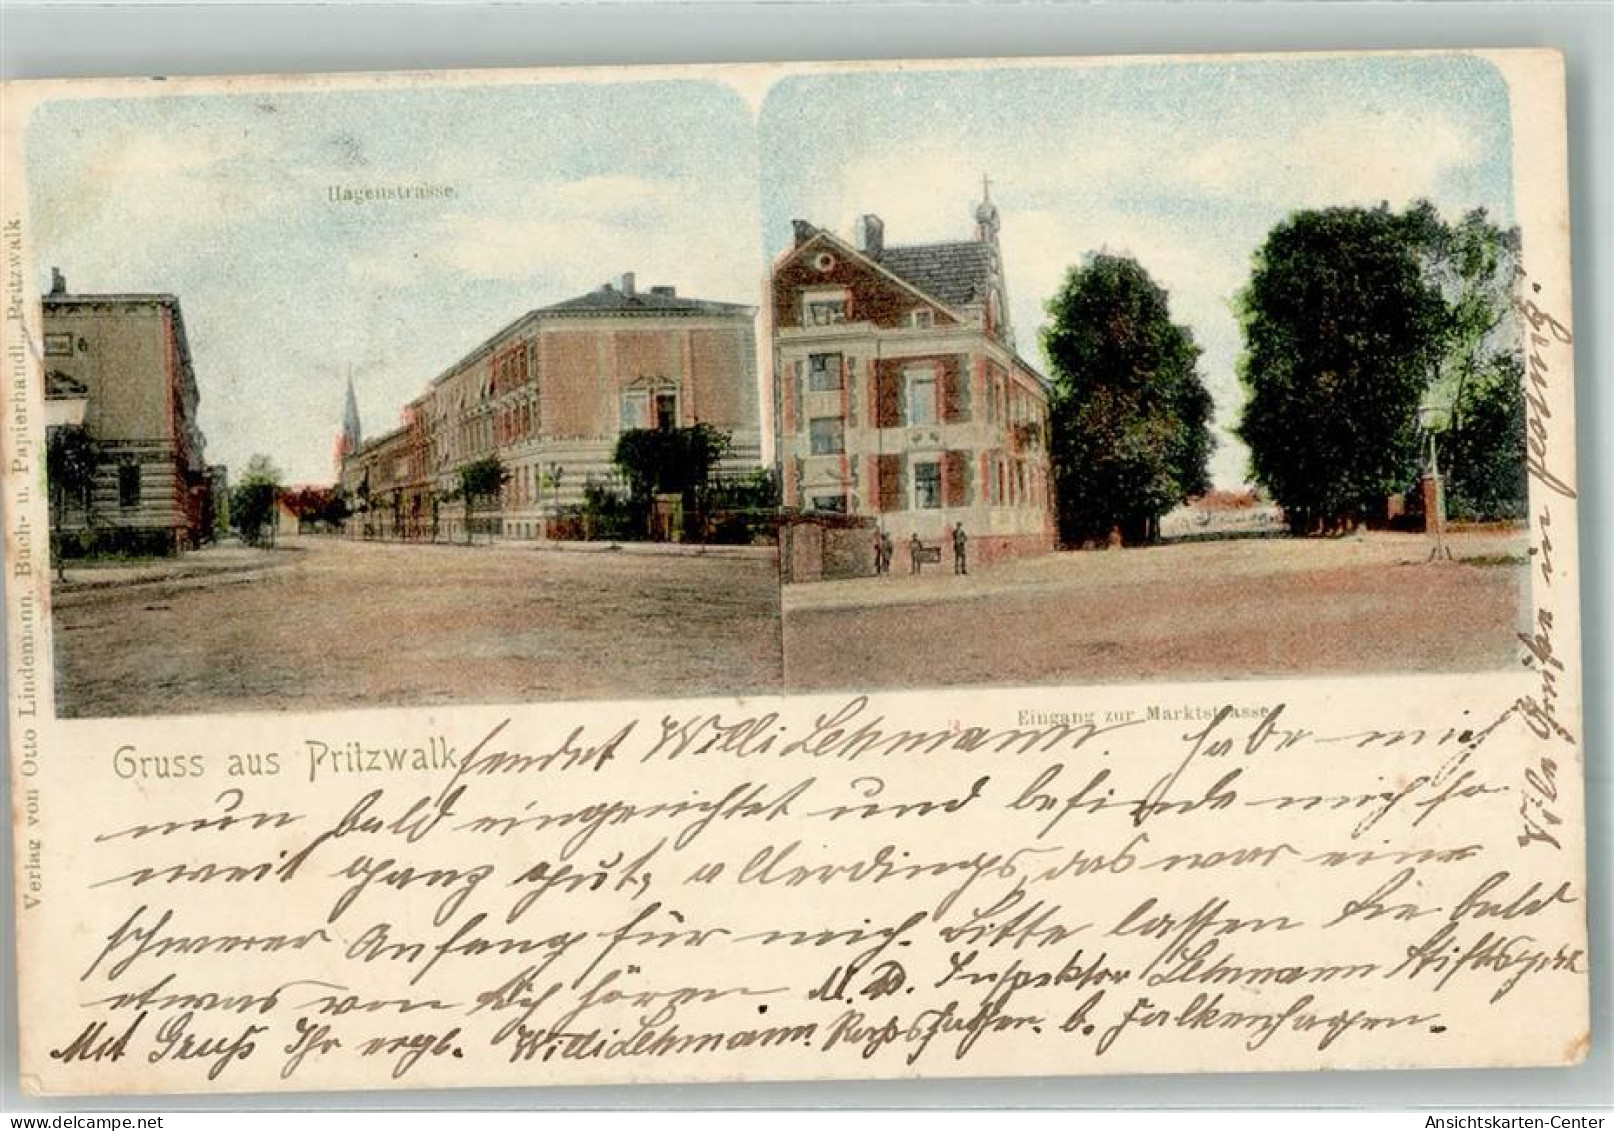 Hagenstrasse.
Eingang zur Marktstrasse
Verlag von Otto Lindemann, Buch- u. Papierhandl., Pritzwalk
Gruss aus Pritzwalk
sendet Willi Lehmann. Habe mich
nun bald eingerichtet und befinde mich so
weit ganz gut, allerdings, das war ein
schwerer Anfang für mich. Bitte lassen Sie bald
etwas von sich hören. Inspektor Lehmann
Mit Gruß Ihr ergb. Willi Lehmann. b. Falkenhagen.
Viele Grüße in
Ansichtskarten-Center